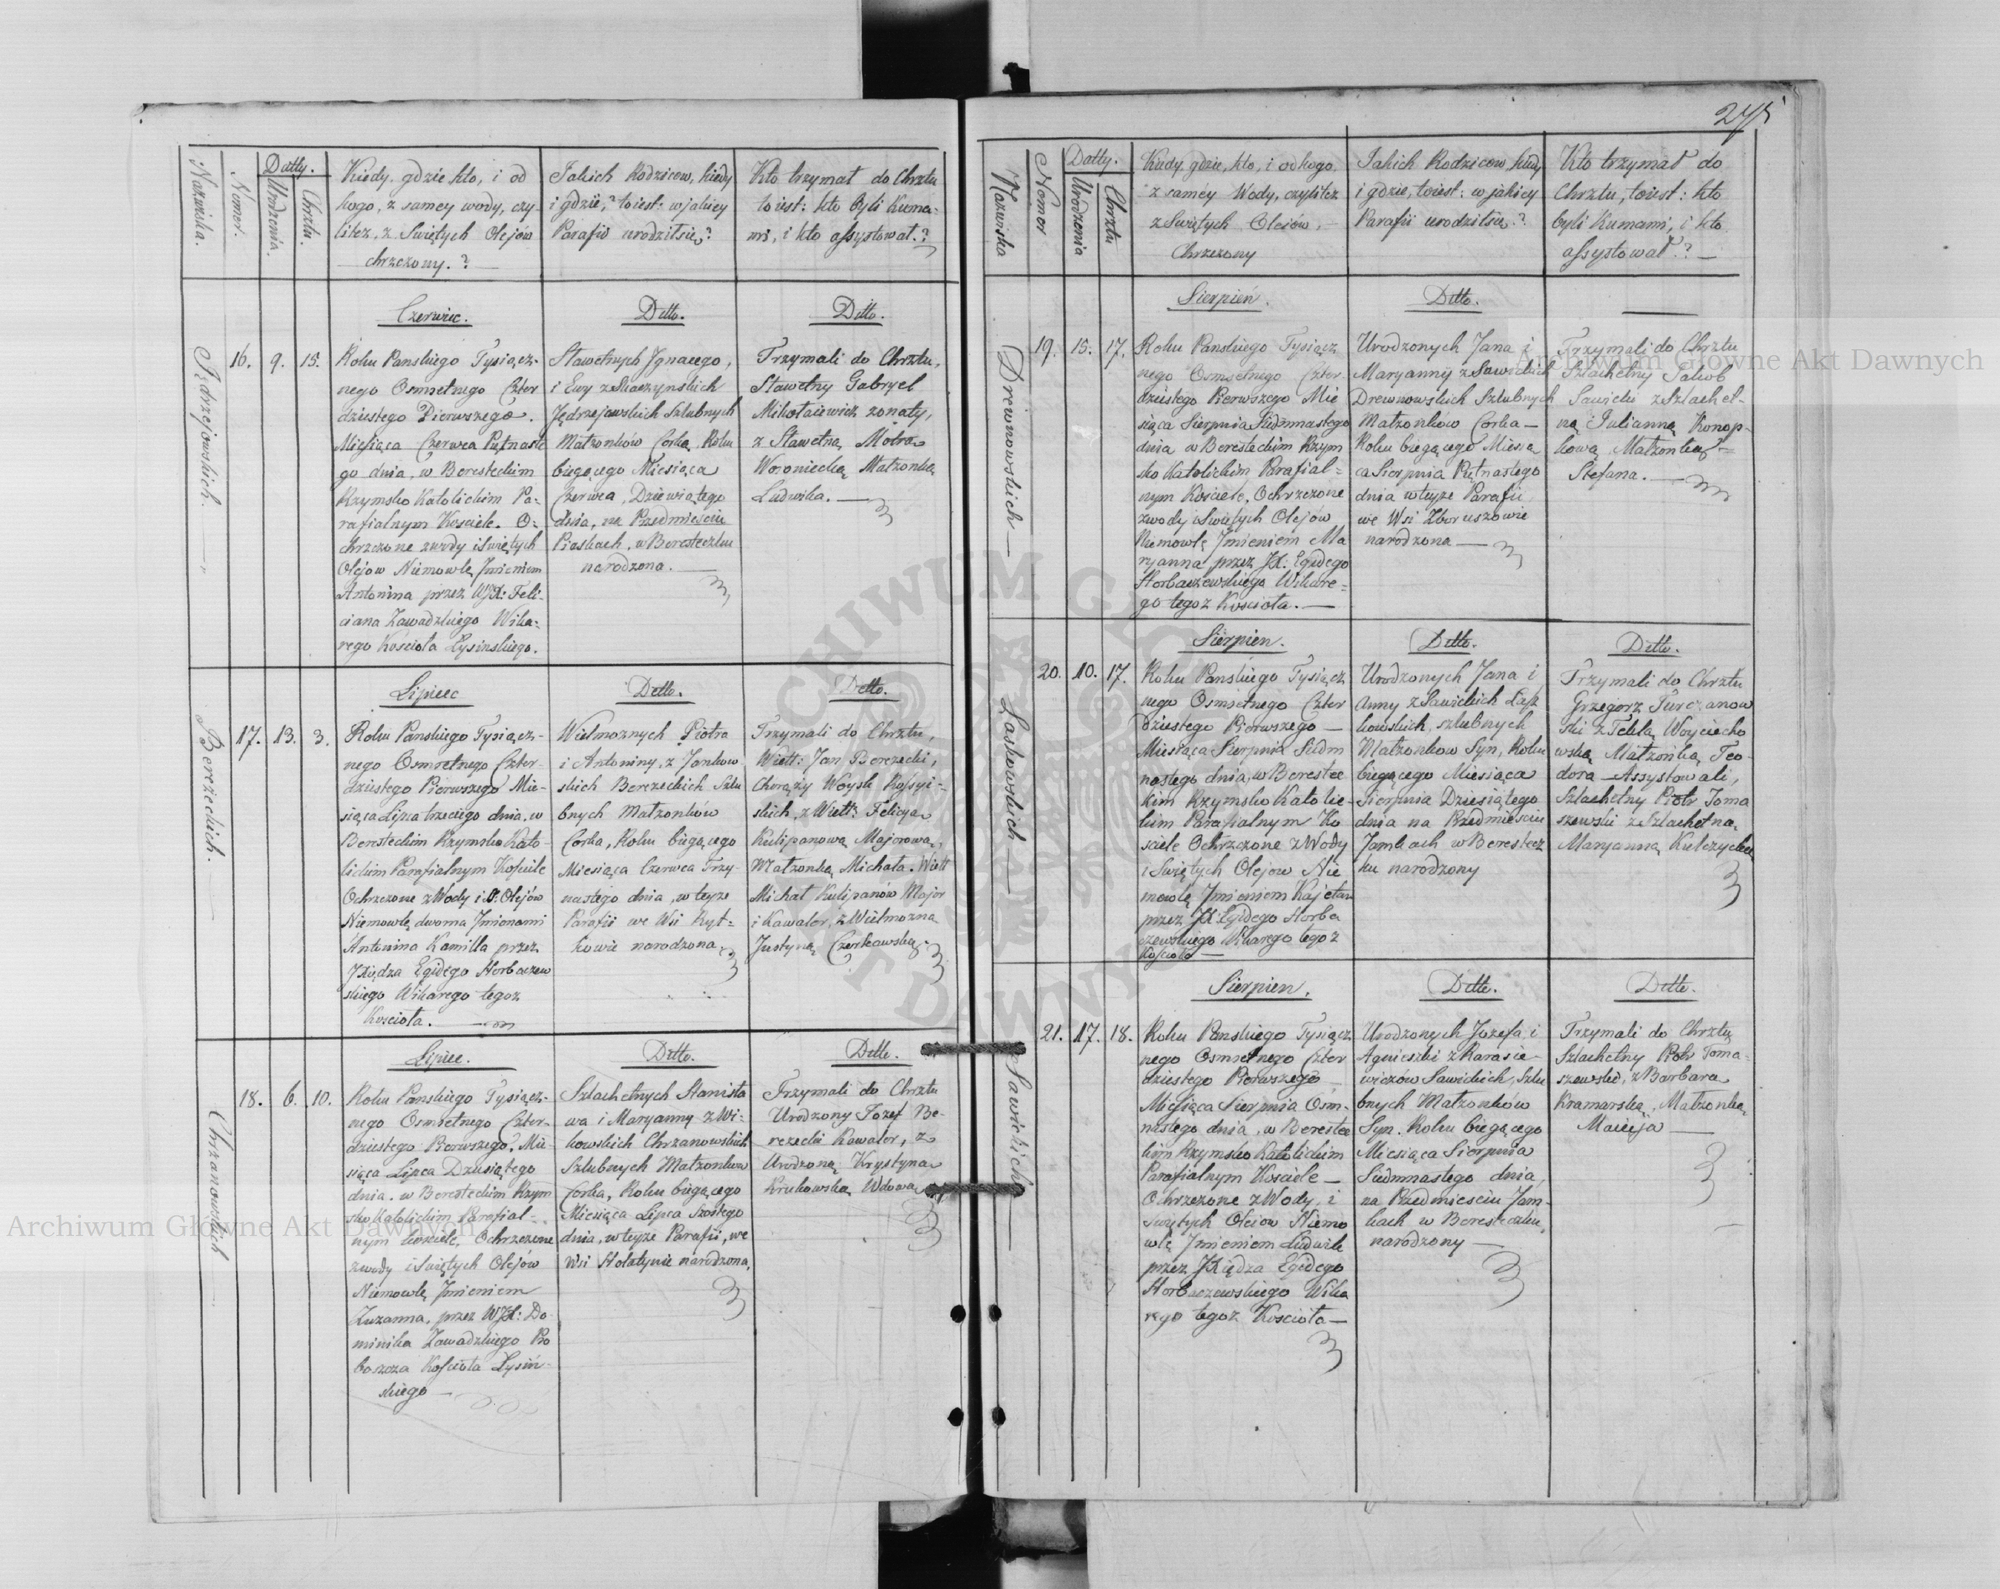 Nazwiska.
Numer.
Datty.
Urodzenia.
Chrztu.
Kiedy, gdzie kto, i od
kogo, z samey wody, czy-
litez, z Swiętych Olejów
chrzczony.?
Jakich Rodzicow, kiedy
i gdzie, toiest: w jakiey
Parafii urodziłsię?
Kto trzymał do Chrztu
toiest: kto byli Kuma-
mi, i kto assystował.?
Jędrzejowskich.
16.
9.
15.
Czerwiec.
Roku Panskiego Tysiącz-
nego Osmsetnego Czter
dziestego Pierwszego.
Miesiąca Czerwca Piętnaste
go dnia, w Beresteckim
Rzymsko Katolickim Pa-
rafialnym Kosciele. O-
chrzczone zwody i Swiętych
Olejow Niemowlę Jmieniem
Antonina przez WJX: Feli-
ciana Zawadzkiego Wika-
rego Kościoła Łysinskiego.
Ditto.
Sławetnych Jgnacego,
i Ewy z
Jędrzejowskich Szlubnych
Matzonków Corka, Roku
biegącego Miesiąca
Czerwca, Dziewiątego
dnia, na Przedmiesciu
Piaskach, w Beresteczku
narodzona.
Ditto.
Trzymali do Chrztu,
Sławetny Gabryel
Mikołaiewicz zonaty,
z Sławetną
Woroniecką Matzonką
Ludwika.
Berezeckich.
17.
13.
3.
Lipiec
Roku Panskiego Tysiącz-
nego Osmsetnego Czter-
dziestego Pierwszego Mie-
siąca Lipca trzeciego dnia, w
Beresteckim Rzymsko Kato-
lickim Parafialnym Kosciele
Ochrzczone z Wody i S. Olejów
Niemowlę dwoma Jmionami
Antonina Kamilla przez
JXiędza Egidego Horbaczew
skiego Wikarego tegoz
Kościoła.
Detto.
Wielmoznych Piotra
i Antoniny, z Jankow
skich Berezeckich Szlu
bnych Matzonków
Corka, Roku biegącego
Miesiąca Czerwca Trzy-
nastego dnia, w teyze
Parafii we Wsi Ryt-
kowie narodzona,
Detto.
Trzymali do Chrztu,
Wiełł: Jan Berezecki,
Chorąży Woysk Rossyi-
skich, z Wiełł: Felicją
Kulipanową Majorową,
Matzonką Michała. Wiełł
Michał Kulipanów Major
i Kawaler, z Wielmozną
Justyną Czerkawską.
Chrzanowskich
18.
6.
10.
Lipiec.
Roku Panskiego Tysiącz-
nego Osmsetnego Czter-
dziestego Pierwszego, Mie-
siąca Lipca Dziesiątego
dnia, w Beresteckim Rzym
sko Katolickim Parafial-
nym Kosciele, Ochrzczone
zwody i Swiętych Olejów
Niemowlę Jmieniem
Zuzanna, przez WJX: Do-
minika Zawadzkiego Pro
boszcza Kościoła Łysiń-
skiego
Ditto.
Szlachetnych Stanisła
wa i Maryanny z Wi-
kowskich Chrzanowskich
Szlubnych Matzonków
Corka, Roku biegącego
Miesiąca Lipca Szostego
dnia, w teyze Parafii, we
Wsi Hołatynie narodzona,
Detto.
Trzymali do Chrztu
Urodzony Jozef Be-
rezecki Kawaler, z
Urodzoną Krystyną
Krukowską Wdową
Nazwiska
Nomer
Datty.
Urodzenia
Chrztu
Kiedy, gdzie, kto, i od kogo,
z saméy Wody, czylitez
z Swiętych Olejów,
Chrzczony
Jakich Rodzicow, kiedy
i gdzie, toiest: w jakiey
Parafii urodziłsię?
Kto trzymał do
Chrztu, toiest: kto
byli Kumami, i kto
assystował?
Drewnowskich
19.
15.
17.
Sierpień.
Roku Panskiego Tysiącz
nego Osmsetnego Czter
dziestego Pierwszego Mie
siąca Sierpnia Siedmnastego
dnia w Beresteckim Rzym
sko Katolickim Parafial-
nym Kościele, Ochrzczone
zwody i Swiętych Olejów
Niemowlę Jmieniem Ma
ryanna przez JX: Egidego
Horbaczewskiego Wikare-
go tegoz Kościoła.
Ditto.
Urodzonych Jana i
Maryanny z Sawickich
Drewnowskich Szlubnych
Matzonków Corka
Roku biegącego Miesią
ca Sierpnia Piętnastego
dnia w teyze Parafii
we Wsi Zboruszowie
narodzona
Trzymali do Chrztu
Szlachetny Jakob
Sawicki z Szlachet-
ną Julianną Konop-
kową Matzonką
Stefana.
Laskowskich
20.
10.
17.
Sierpien.
Roku Panskiego Tysiącz
nego Osmsetnego Czter
Dziestego Pierwszego
Miesiąca Sierpnia Siedm
nastego dnia, w Berestec
kim Rzymsko Katolic-
kim Parafialnym Ko
sciele Ochrzczone z Wody
i Swiętych Olejow Nie
mowlę Jmieniem Kajetan
przez JX: Egidego Horba
czewskiego Wikarego tegoz
Kościoła
Ditto.
Urodzonych Jana i
Anny z Sawickich Las
kowskich, szlubnych
Matzonkow Syn, Roku
biegącego Miesiąca
Sierpnia Dziesiątego
dnia na Przedmiesciu
Zamkach w Berestecz
ku narodzony
Ditto.
Trzymali do Chrztu
Grzegorz Turczanow
ski z Teklą Woyciecho
wską Matzonką Teo-
dora Assystowali,
Szlachetny Piotr Toma
szewski z Szlachetną
Maryanną Kulczycką
Sawickich
21.
17.
18.
Sierpien.
Roku Panskiego Tysiącz
nego Osmsetnego Czter
dziestego Pierwszego
Miesiąca Sierpnia Osm-
nastego dnia, w Berestec
kim Rzymsko Katolickim
Parafialnym Kościele
Ochrzczone z Wody, i
Swiętych Olejow Niemo
wlę Jmieniem Ludwik
przez JXiędza Egidego
Horbaczewskiego Wika
rego tegoz Kościoła
Ditto.
Urodzonych Jozefa i
Agnieszki z Karasie-
wiczów Sawickich, Szlu
bnych Matzonków
Syn. Roku biegącego
Miesiąca Sierpnia
Siedmnastego dnia,
na Przedmiesciu Zam-
kach w Beresteczku,
narodzony
Ditto.
Trzymali do Chrztu
Szlachetny Piotr Toma-
szewski, z Barbarą
Kramarską, Matzonką
Macieja
Archiwum Główne Akt Dawnych
Archiwum Główne Akt Dawnych